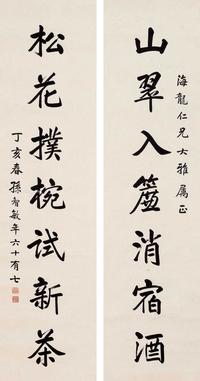 海龍仁兄大雅屬正
山翠入簷消宿酒
松花撲椀試新茶
丁亥春孫智敏年六十有七